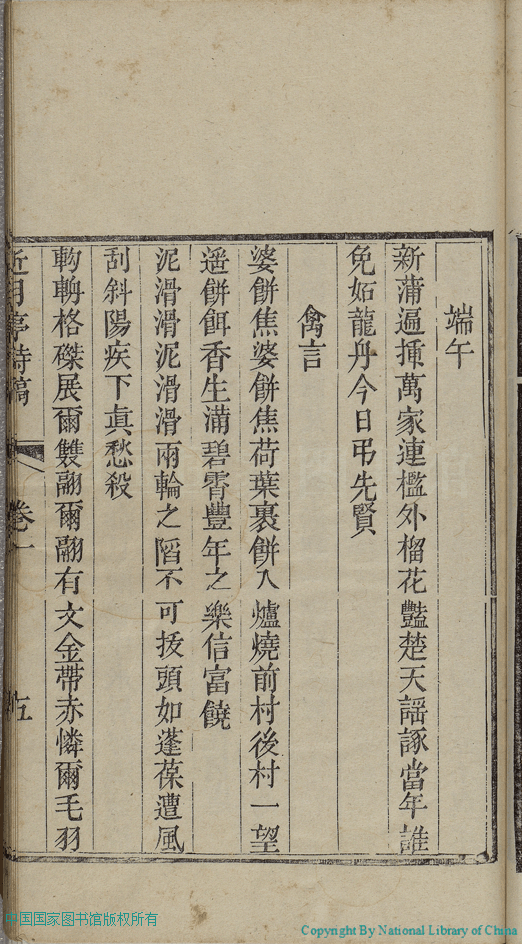 端午
新蒲遍揷萬家連檻外榴花豔楚天謡諑當年誰
免妬龍舟今日弔先賢
禽言
婆餅焦婆餅焦荷葉裹餅入爐燒前村後村一望
遥餅餌香生滿碧霄豐年之樂信富饒
泥滑滑泥滑滑兩輪之䧟不可拔頭如蓬葆遭風
刮斜陽疾下眞愁殺
軥輈格磔展爾雙翮爾翮有文金帶赤憐爾毛羽
近月亭詩稿 卷一 五
中国国家图书馆版权所有
Copyright By National Library of China